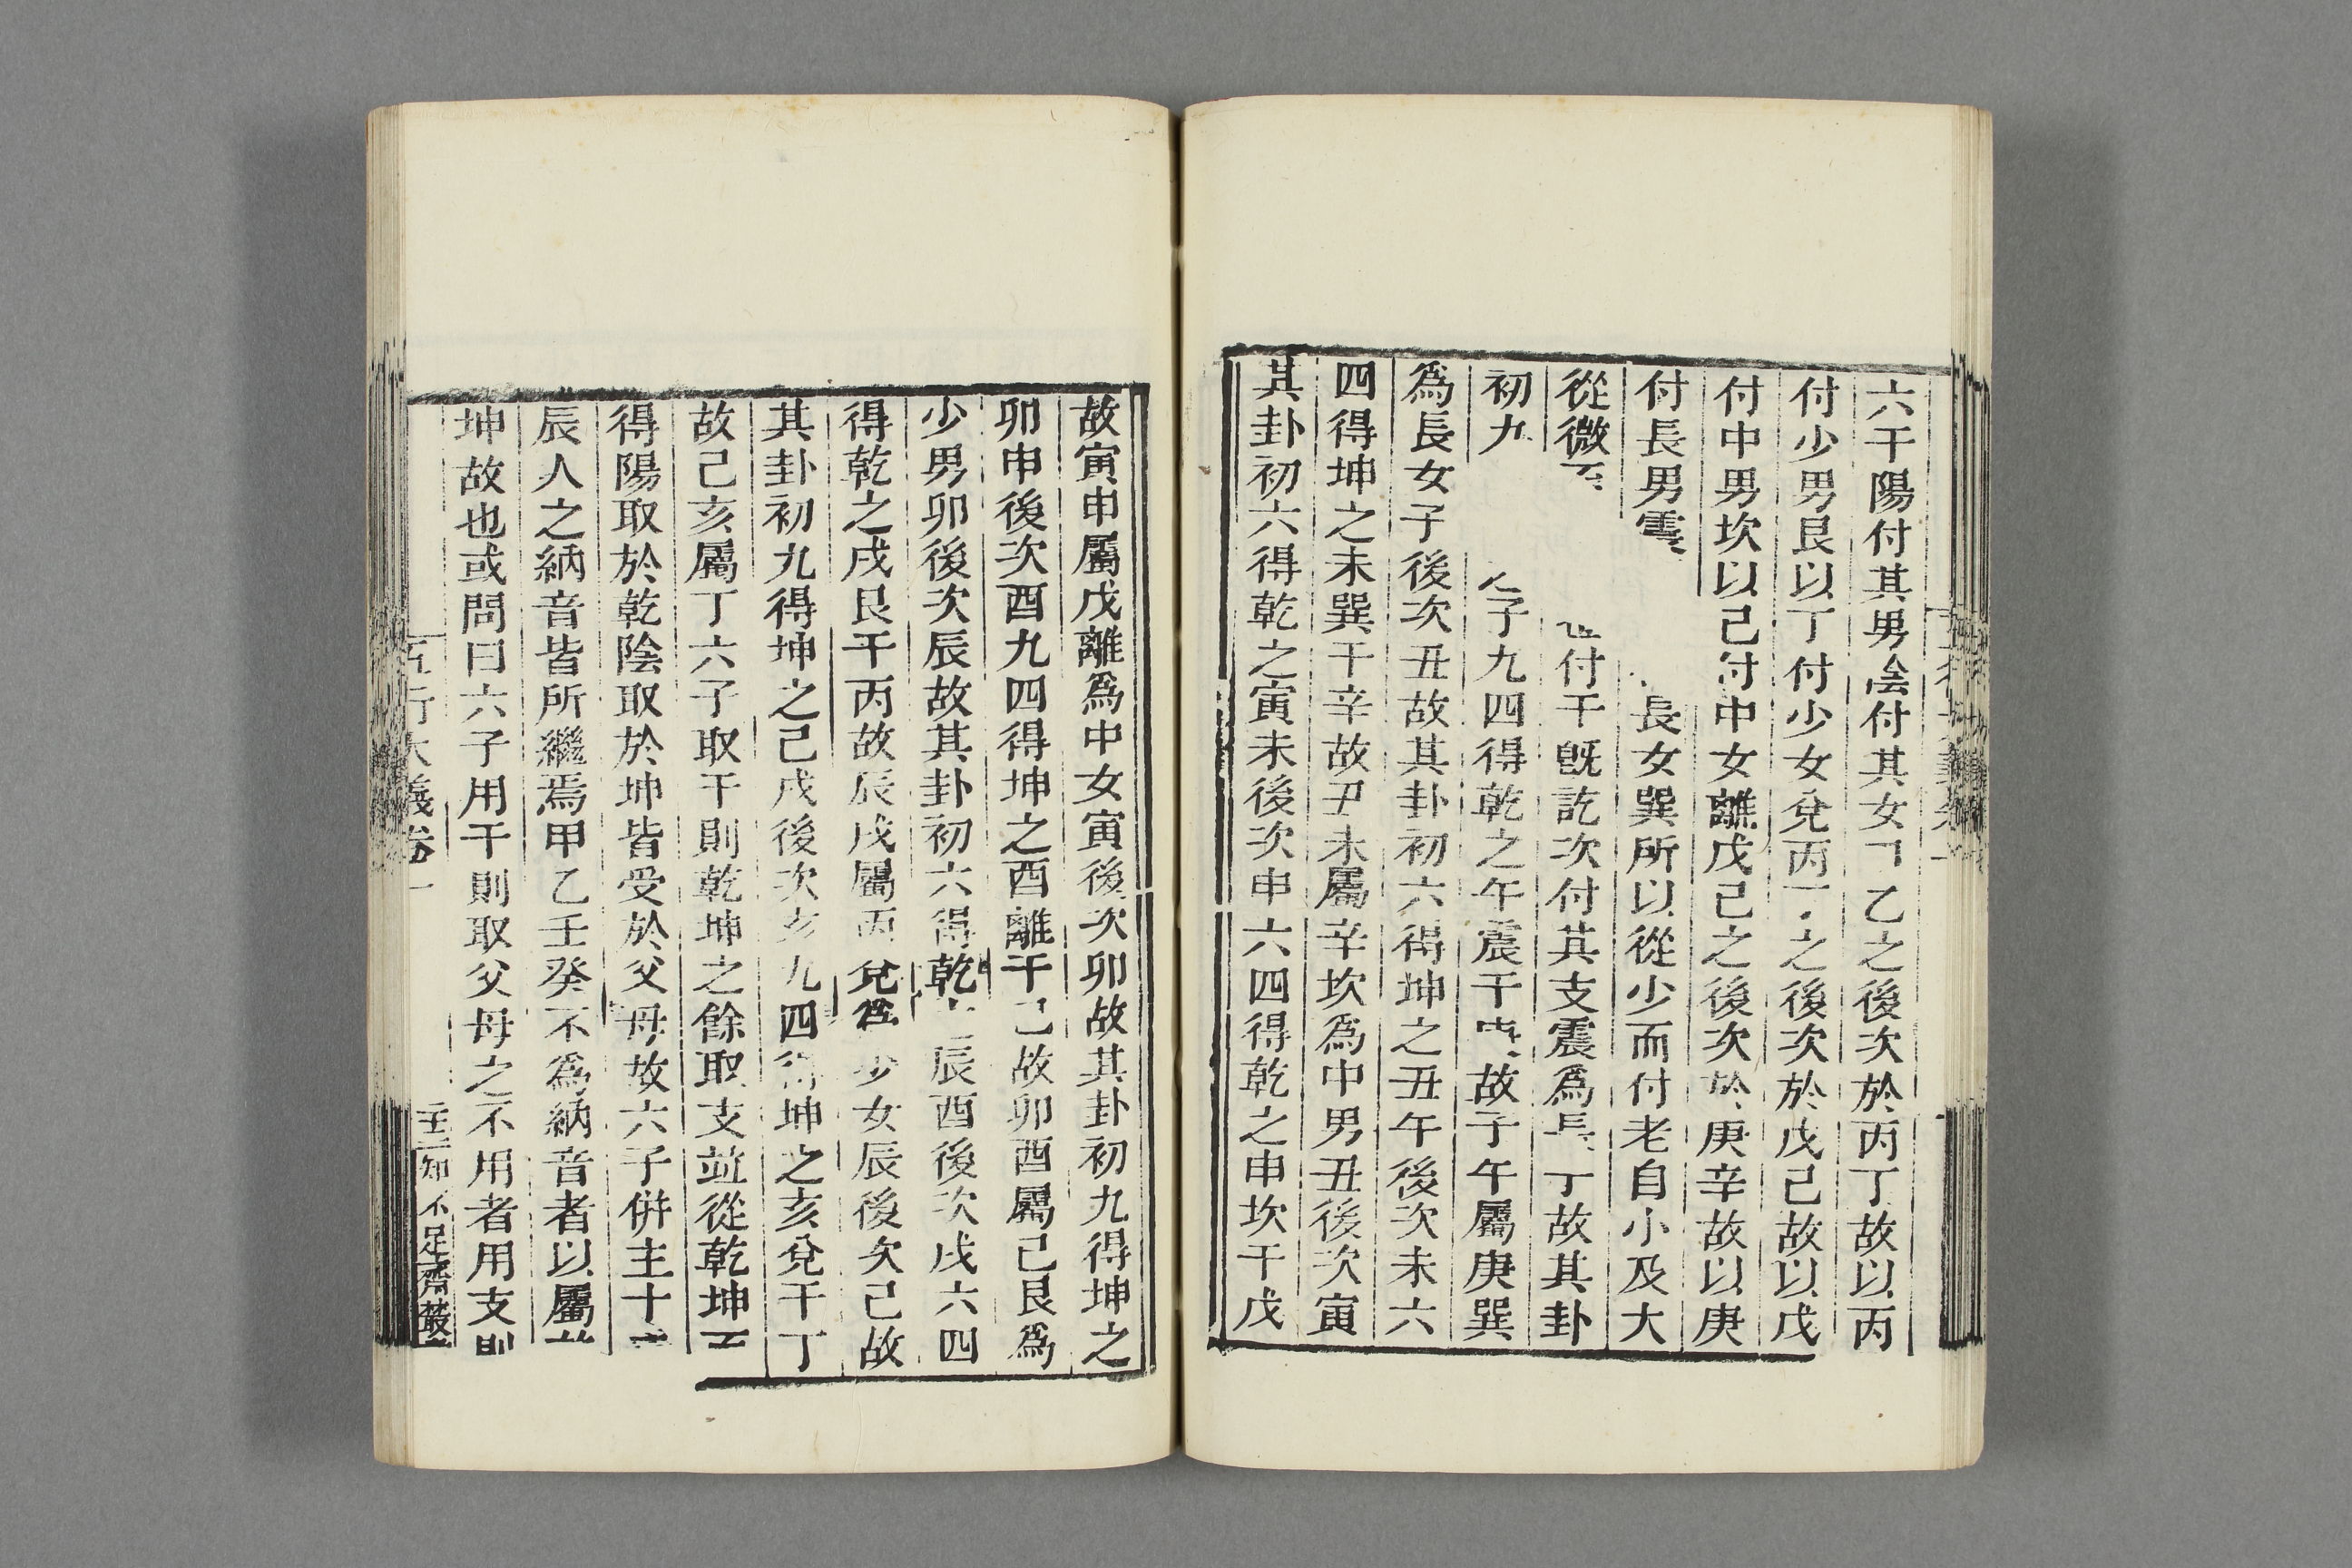 六干陽付其男陰付其女 乙之後次於丙丁故以丙
付少男艮以丁付少女兌丙 之後次於戊己故以戊
付中男坎以己付中女離戊己之後次於庚辛故以庚
付長男震 長女巽所以從少而付老自小及大
從微 付干旣訖次付其支震爲長 故其卦
初九 子九四得乾之午震干 故子午屬庚巽
爲長女子後次丑故其卦初六得坤之丑午後次未六
四得坤之未巽干辛故丑未屬辛坎爲中男丑後次寅
其卦初六得乾之寅未後次申六四得乾之申坎干戊
故寅申屬戊離爲中女寅後次卯故其卦初九得坤之
卯申後次酉九四得坤之酉離干己故卯酉屬己艮爲
少男卯後次辰故其卦初六得乾 辰酉後次戌六四
得乾之戌艮干丙故辰戌屬丙兌 少女辰後次己故
其卦初九得坤之己戌後次亥九四得坤之亥兌干丁
故己亥屬丁六子取干則乾坤之餘取支並從乾坤
得陽取於乾陰取於坤皆受於父母故六子併主十
辰人之納音皆所繼焉甲乙壬癸不爲納音者以屬
坤故也或問曰六子用干則取父母之不用者用支則
五行大義卷一 知不足齋叢